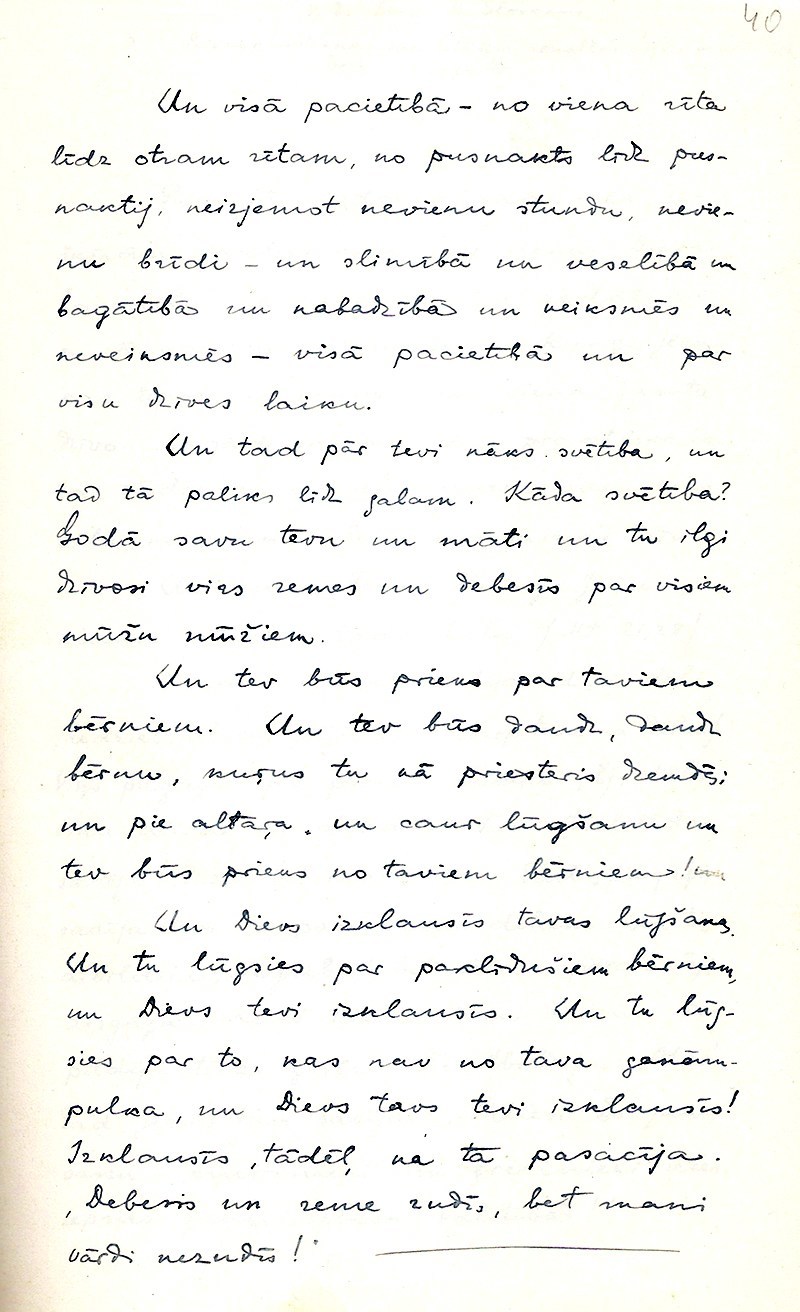 40
Un visā pacietībā – no viena rīta
līdz otram rītam, no pusnakts līdz pus-
naktij, neizjemot nevienu stundu, nevie-
nu brīdi – un slimībā un veselībā un
bagātībā un nabadzībā un veiksmēs un
neveiksmēs – visā pacietībā un par
visu dzīves laiku.
Un tad pār tevi nāks svētība, un
tad tā paliks līdz galam. Kāda svētība?
Godā savu tēvu un māti un tu ilgi
dzīvosi virs zemes un debesīs par visiem
mūžu mūžiem.
Un tev būs prieks par taviem
bērniem. Un tev būs daudz, daudz
bērnu, kuŗus tu kā priesteris dzemdēsi
un pie altāŗa, un caur lūgšanu un
tev būs prieks no taviem bērniem! un
Un Dievs izklausīs tavas lūgšanas.
Un tu lūgsies par paklīdušiem bērniem,
un Dievs tevi izklausīs. Un tu lūg-
sies par to, kas nav no tava ganām-
pulka, un Dievs tavs tevi izklausīs!
Izklausīs, tādēļ, ka tā pasacīja.
„Debesis un zeme zudīs, bet mani
vārdi nezudīs!"